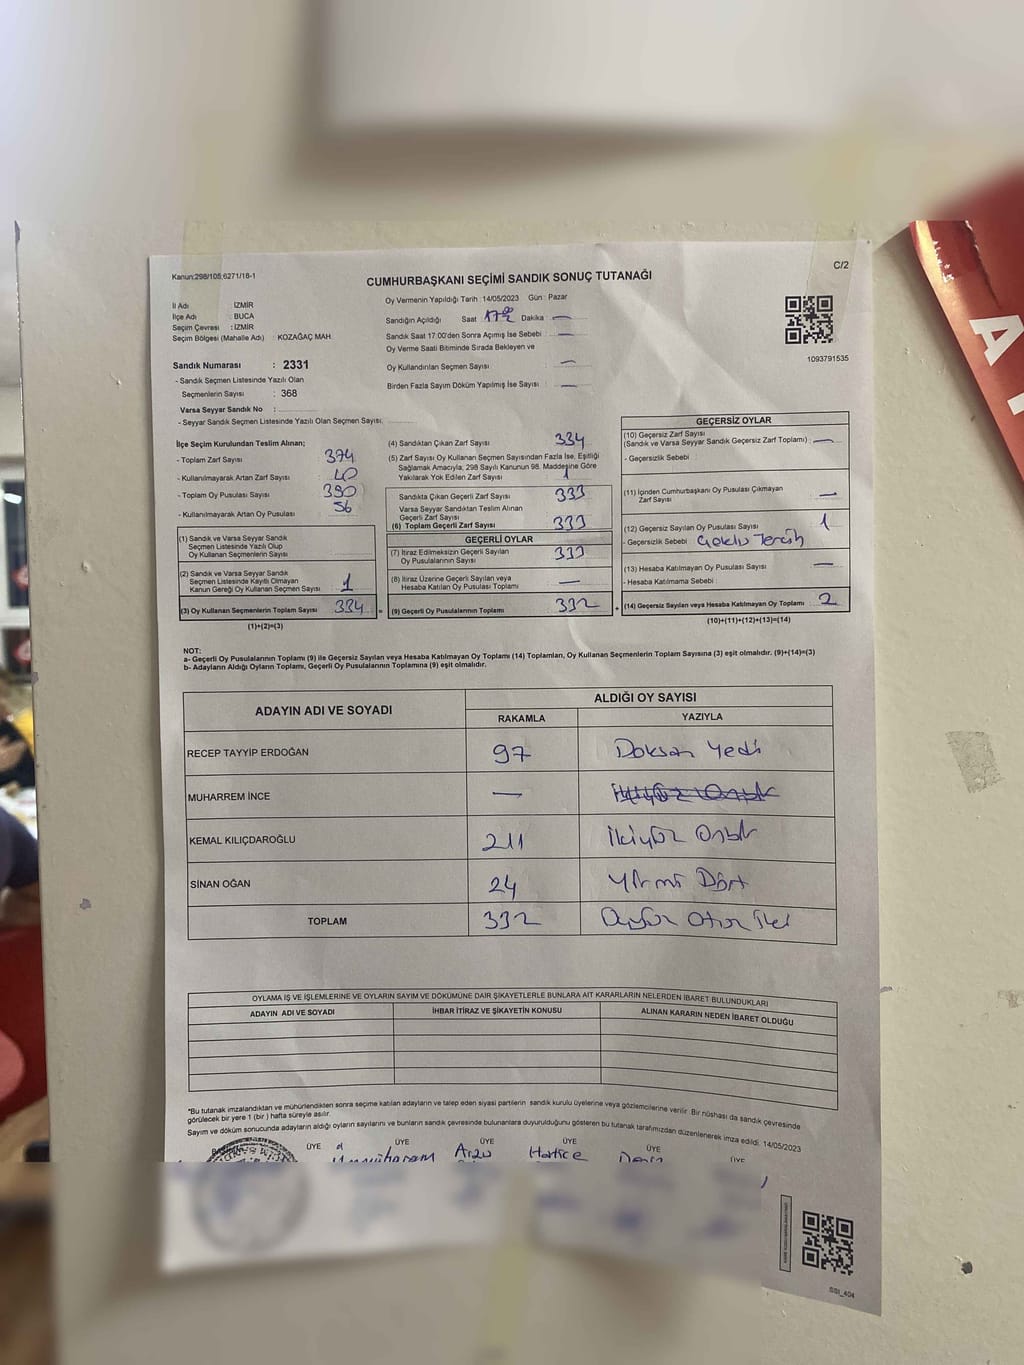 Kanun:298/105;6271/16-1
C/2
CUMHURBAŞKANI SEÇİMİ SANDIK SONUÇ TUTANAĞI
İl Adı : İZMİR
İlçe Adı : BUCA
Seçim Çevresi : İZMİR
Seçim Bölgesi (Mahalle Adı) : KOZAĞAÇ MAH.
Oy Vermenin Yapıldığı Tarih :14/05/2023 Gün : Pazar
Sandığın Açıldığı Saat 17⁰⁰ Dakika —
Sandık Saat 17:00'den Sonra Açımış İse Sebebi : —
Oy Verme Saati Bitiminde Sırada Bekleyen ve
Oy Kullandırılan Seçmen Sayısı —
Birden Fazla Sayım Döküm Yapılmış İse Sayısı : —
1093791535
Sandık Numarası : 2331
- Sandık Seçmen Listesinde Yazılı Olan
Seçmenlerin Sayısı : 368
Varsa Seyyar Sandık No :
- Seyyar Sandık Seçmen Listesinde Yazılı Olan Seçmen Sayısı:
İlçe Seçim Kurulundan Teslim Alınan;
- Toplam Zarf Sayısı 374
- Kullanılmayarak Artan Zarf Sayısı 40
- Toplam Oy Pusulası Sayısı 390
- Kullanılmayarak Artan Oy Pusulası 56
(1) Sandık ve Varsa Seyyar Sandık
Seçmen Listesinde Yazılı Olup
Oy Kullanan Seçmenlerin Sayısı
(2) Sandık ve Varsa Seyyar Sandık
Seçmen Listesinde Kayıtlı Olmayan
Kanun Gereği Oy Kullanan Seçmen Sayısı 1
(3) Oy Kullanan Seçmenlerin Toplam Sayısı 334 =
(1)+(2)=(3)
(4) Sandıktan Çıkan Zarf Sayısı 334
(5) Zarf Sayısı Oy Kullanan Seçmen Sayısından Fazla İse, Eşitliği
Sağlamak Amacıyla, 298 Sayılı Kanunun 98. Maddesine Göre
Yakılarak Yok Edilen Zarf Sayısı 1
Sandıkta Çıkan Geçerli Zarf Sayısı 333
Varsa Seyyar Sandıktan Teslim Alınan
Geçerli Zarf Sayısı
(6) Toplam Geçerli Zarf Sayısı 333
GEÇERLİ OYLAR
(7) İtiraz Edilmeksizin Geçerli Sayılan
Oy Pusulalarının Sayısı 333
(8) İtiraz Üzerine Geçerli Sayılan veya
Hesaba Katılan Oy Pusulası Toplamı —
(9) Geçerli Oy Pusulalarının Toplamı 332 +
GEÇERSİZ OYLAR
(10) Geçersiz Zarf Sayısı
(Sandık ve Varsa Seyyar Sandık Geçersiz Zarf Toplamı) —
- Geçersizlik Sebebi :
(11) İçinden Cumhurbaşkanı Oy Pusulası Çıkmayan
Zarf Sayısı —
(12) Geçersiz Sayılan Oy Pusulası Sayısı 1
- Geçersizlik Sebebi Tercih
(13) Hesaba Katılmayan Oy Pusulası Sayısı —
- Hesaba Katılmama Sebebi :
(14) Geçersiz Sayılan veya Hesaba Katılmayan Oy Toplamı 2
(10)+(11)+(12)+(13)=(14)
NOT:
a- Geçerli Oy Pusulalarının Toplamı (9) ile Geçersiz Sayılan veya Hesaba Katılmayan Oy Toplamı (14) Toplamları, Oy Kullanan Seçmenlerin Toplam Sayısına (3) eşit olmalıdır. (9)+(14)=(3)
b- Adayların Aldığı Oyların Toplamı, Geçerli Oy Pusulalarının Toplamına (9) eşit olmalıdır.
ADAYIN ADI VE SOYADI ALDIĞI OY SAYISI
RAKAMLA YAZIYLA
RECEP TAYYİP ERDOĞAN 97 Doksan Yedi
MUHARREM İNCE —
KEMAL KILIÇDAROĞLU 211 İkiyüz Onbir
SİNAN OĞAN 24 Yirmi Dört
TOPLAM 332 Üçyüz Otuz İki
OYLAMA İŞ VE İŞLEMLERİNE VE OYLARIN SAYIM VE DÖKÜMÜNE DAİR ŞİKAYETLERLE BUNLARA AİT KARARLARIN NELERDEN İBARET BULUNDUKLARI
ADAYIN ADI VE SOYADI İHBAR İTİRAZ VE ŞİKAYETİN KONUSU ALINAN KARARIN NEDEN İBARET OLDUĞU
*Bu tutanak imzalandıktan ve mühürlendikten sonra seçime katılan adayların ve talep eden siyasi partilerin sandık kurulu üyelerine veya gözlemcilerine verilir. Bir nüshası da sandık çevresinde
görülecek bir yere 1 (bir) hafta süreyle asılır.
Sayım ve döküm sonucunda adayların aldığı oyların sayılarını ve bunların sandık çevresinde bulunanlara duyurulduğunu gösteren bu tutanak tarafımızdan düzenlenerek imza edildi. 14/05/2023
ÜYE ÜYE ÜYE ÜYE ÜYE ÜYE
Arzu Hatice
A